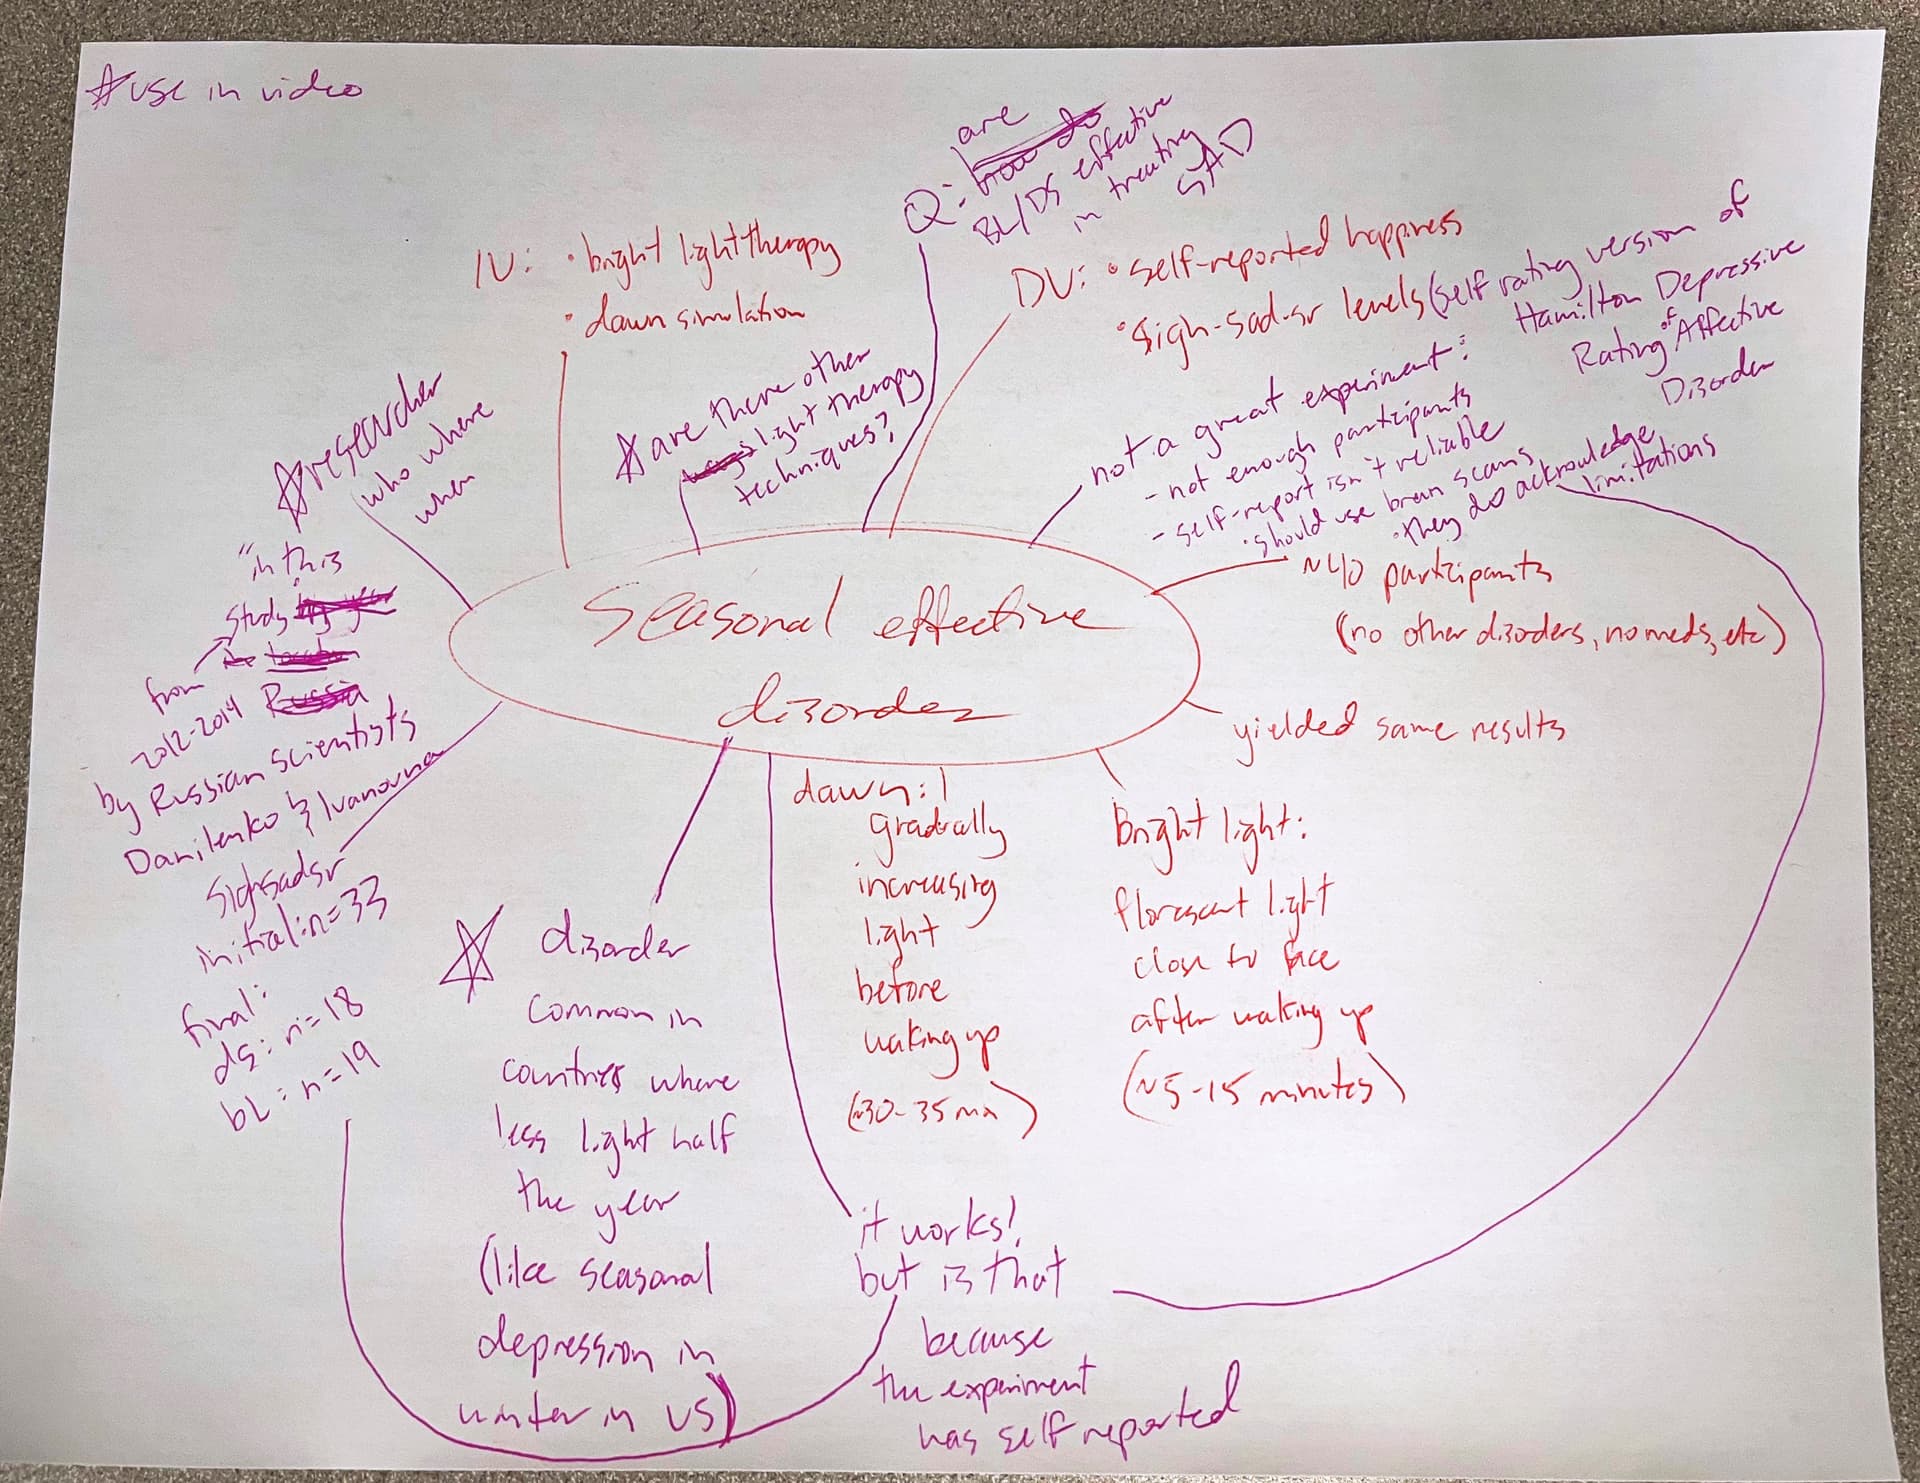 ☆use in video
are
Q: how do
BL/DS effective
in treating
SAD
IV: • bright light therapy
• dawn simulation
DV: • self-reported happiness
• Sigh-sad-sr levels (self rating version of
Hamilton Depressive
Rating of Affective
Disorder
☆researcher
who where
when
☆are there other
light therapy
techniques?
not a great experiment:
- not enough participants
- self-report isn't reliable
• should use brain scans
• they do acknowledge
limitations
"in this
study by year
from
2012-2014 Russia
by Russian scientists
Danilenko & Ivanovna
Seasonal effective
disorder
~40 participants
(no other disorders, no meds, etc)
yielded same results
Sighsadsr
initial: n=33
final:
ds: n=18
bL: n=19
☆ disorder
common in
countries where
less light half
the year
(like seasonal
depression in
winter in US)
dawn:
gradually
increasing
light
before
waking up
(~30-35 min)
Bright light:
florescent light
close to face
after waking up
(~5-15 minutes)
it works!
but is that
because
the experiment
was self reported